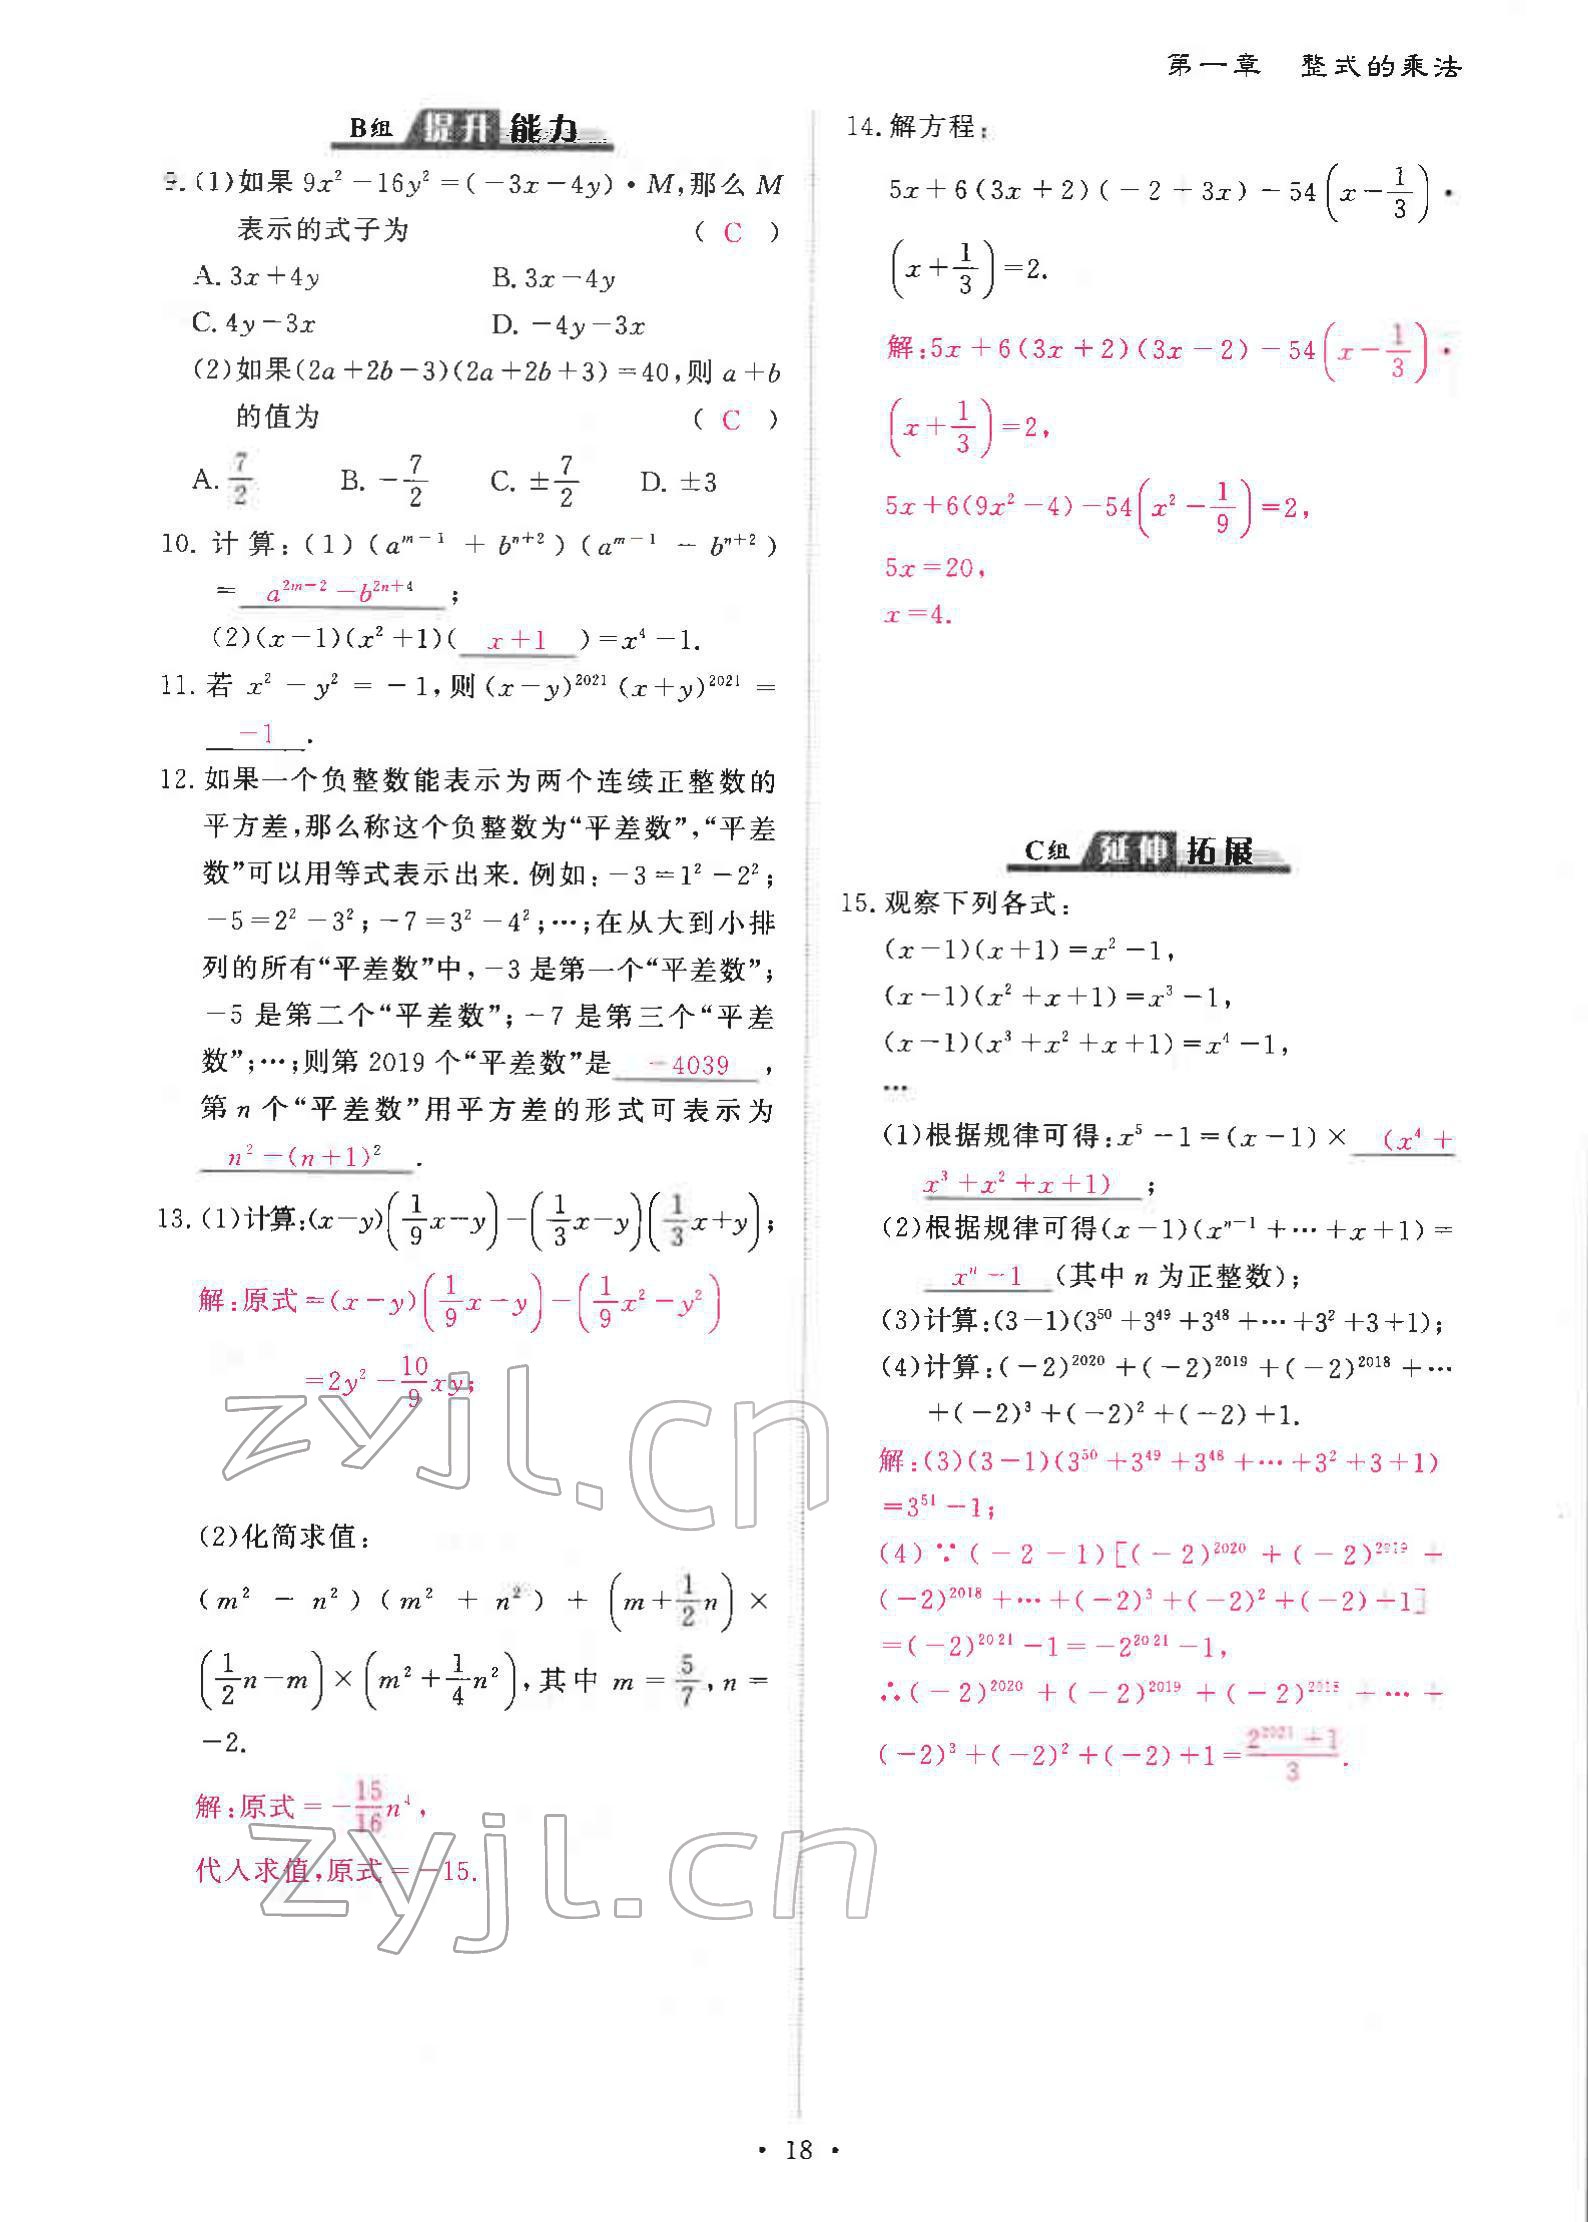 第一章 整式的乘法
B组 提升 能力
9.(1)如果 9x²－16y²＝(－3x－4y)·M,那么 M
表示的式子为 ( C )
A. 3x＋4y B. 3x－4y
C. 4y－3x D. －4y－3x
(2)如果(2a＋2b－3)(2a＋2b＋3)＝40,则 a＋b
的值为 ( C )
A. 7/2 B. －7/2 C. ±7/2 D. ±3
10. 计算:(1)(a^{m－1}＋b^{n＋2})(a^{m－1}－b^{n＋2})
＝ a^{2m－2}－b^{2n＋4} ;
(2)(x－1)(x²＋1)( x＋1 )＝x⁴－1.
11. 若 x²－y²＝－1,则(x－y)^{2021}(x＋y)^{2021}＝
－1 .
12. 如果一个负整数能表示为两个连续正整数的
平方差,那么称这个负整数为“平差数”,“平差
数”可以用等式表示出来. 例如:－3＝1²－2²;
－5＝2²－3²;－7＝3²－4²;…;在从大到小排
列的所有“平差数”中,－3 是第一个“平差数”;
－5 是第二个“平差数”;－7 是第三个“平差
数”;…;则第 2019 个“平差数”是 －4039 ,
第 n 个“平差数”用平方差的形式可表示为
n²－(n＋1)² .
13.(1)计算:(x－y)(1/9x－y)－(1/3x－y)(1/3x＋y);
解:原式＝(x－y)(1/9x－y)－(1/9x²－y²)
＝2y²－10/9xy;
(2)化简求值:
(m²－n²)(m²＋n²)＋(m＋1/2n)×
(1/2n－m)×(m²＋1/4n²),其中 m＝5/7,n＝
－2.
解:原式＝－15/16n⁴,
代入求值,原式＝－15.
14. 解方程:
5x＋6(3x＋2)(－2＋3x)－54(x－1/3)·
(x＋1/3)＝2.
解:5x＋6(3x＋2)(3x－2)－54(x－1/3)·
(x＋1/3)＝2,
5x＋6(9x²－4)－54(x²－1/9)＝2,
5x＝20,
x＝4.
C组 延伸 拓展
15. 观察下列各式:
(x－1)(x＋1)＝x²－1,
(x－1)(x²＋x＋1)＝x³－1,
(x－1)(x³＋x²＋x＋1)＝x⁴－1,
…
(1)根据规律可得:x⁵－1＝(x－1)× (x⁴＋
x³＋x²＋x＋1) ;
(2)根据规律可得(x－1)(x^{n－1}＋…＋x＋1)＝
xⁿ－1 (其中 n 为正整数);
(3)计算:(3－1)(3⁵⁰＋3⁴⁹＋3⁴⁸＋…＋3²＋3＋1);
(4)计算:(－2)^{2020}＋(－2)^{2019}＋(－2)^{2018}＋…
＋(－2)³＋(－2)²＋(－2)＋1.
解:(3)(3－1)(3⁵⁰＋3⁴⁹＋3⁴⁸＋…＋3²＋3＋1)
＝3⁵¹－1;
(4)∵(－2－1)[(－2)^{2020}＋(－2)^{2019}＋
(－2)^{2018}＋…＋(－2)³＋(－2)²＋(－2)＋1]
＝(－2)^{2021}－1＝－2^{2021}－1,
∴(－2)^{2020}＋(－2)^{2019}＋(－2)^{2018}＋…＋
(－2)³＋(－2)²＋(－2)＋1＝(2^{2021}＋1)/3.
zyjl.cn
zyjl.cn
· 18 ·